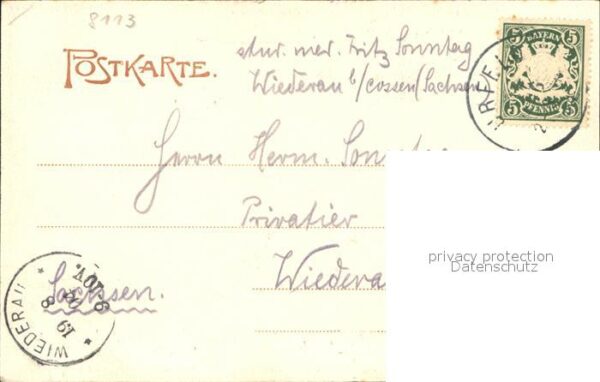 8113
POSTKARTE.
stur. med. Fritz Sonntag
Wiederau b/Cossen (Sachsen
BAYERN
5 5
5 5
PFENNIG
URFEL
2
Herrn Herm.
Privatier
Wiedera
Sachsen.
WIEDERAU
19 8
privacy protection
Datenschutz